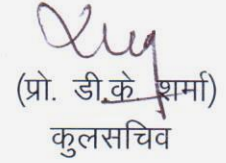 (प्रो. डी.के. शर्मा)
कुलसचिव